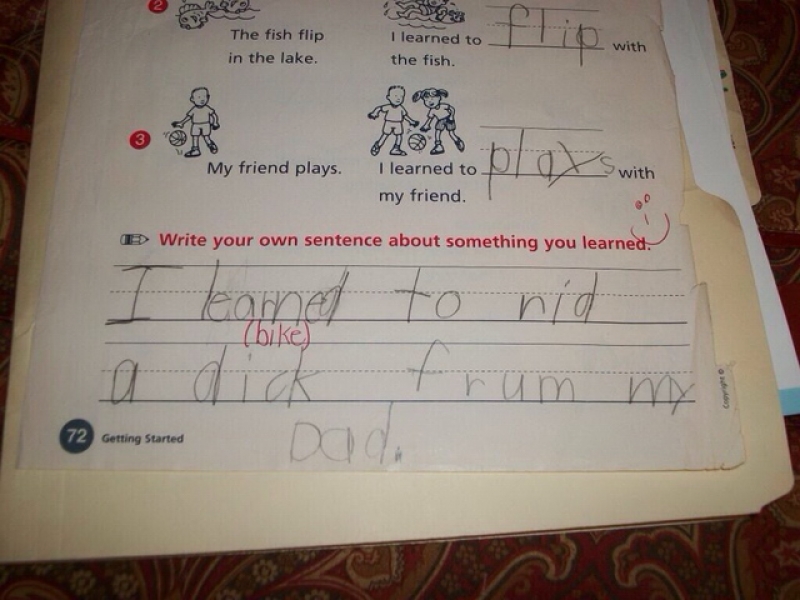 2
The fish flip
in the lake.
I learned to flip with
the fish.
3
My friend plays.
I learned to plays with
my friend.
Write your own sentence about something you learned.
I learned to rid
(bike)
a dick frum my
Dad.
72 Getting Started
Copyright ©